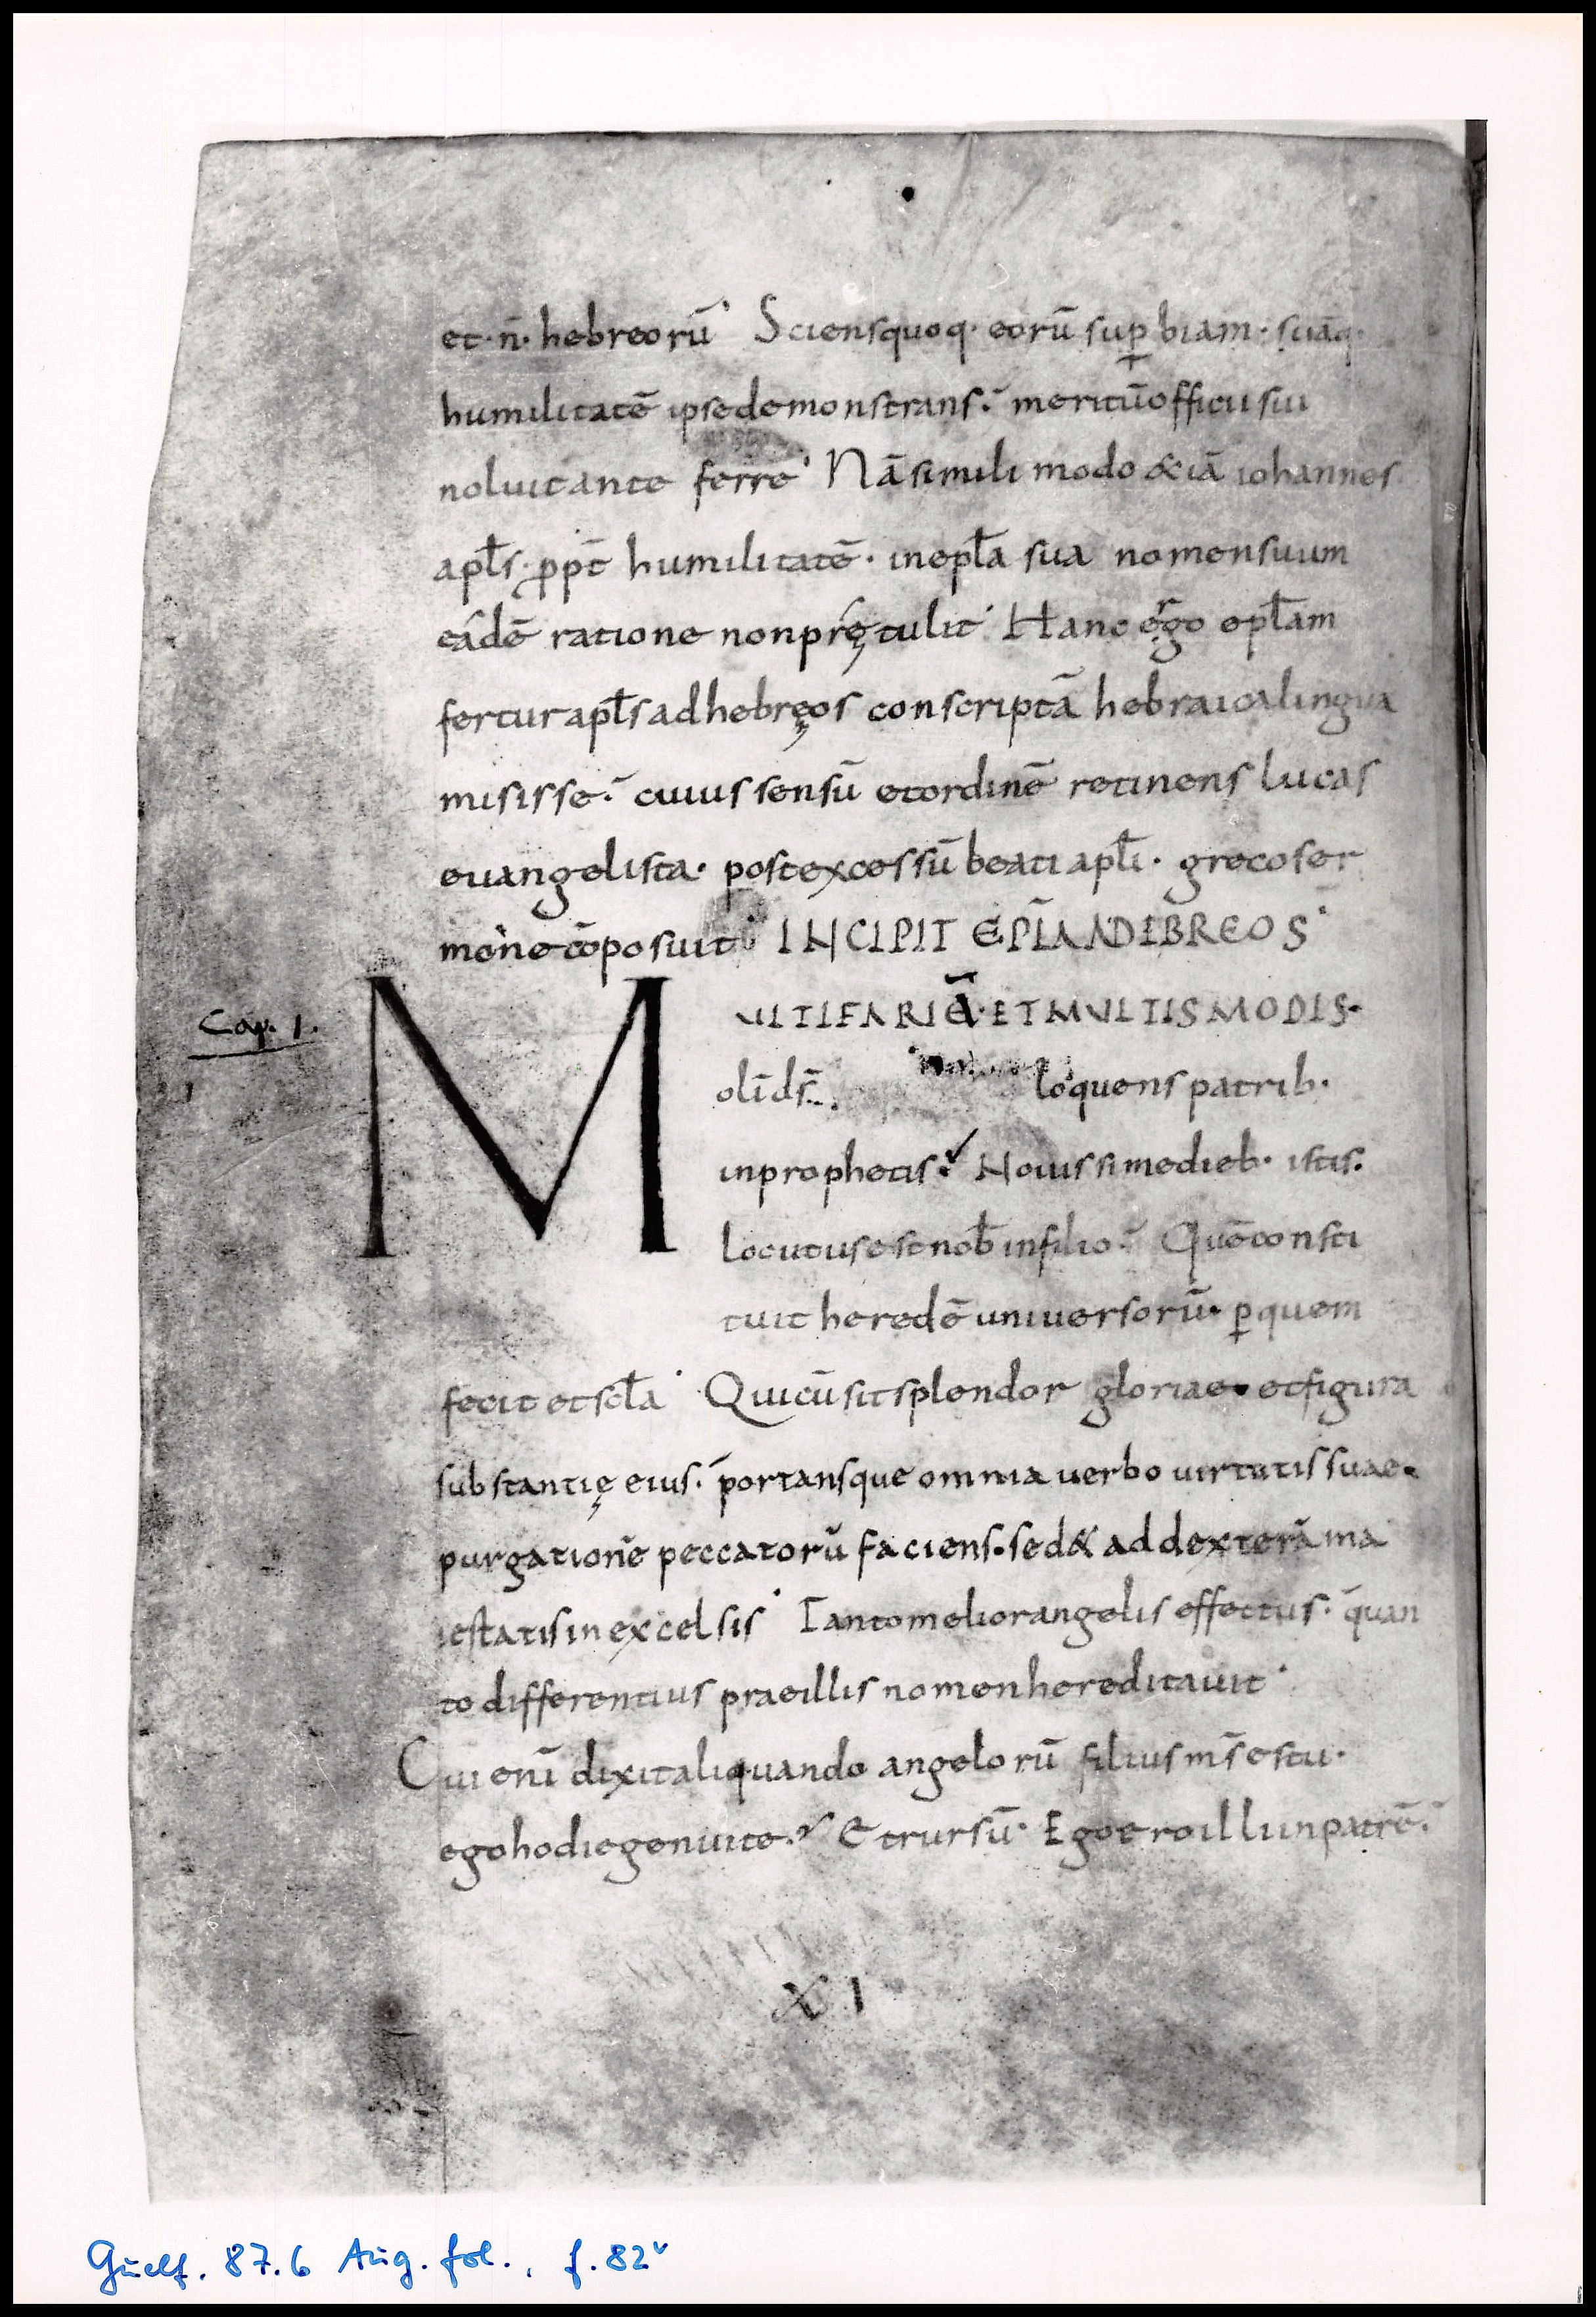 et·n̄· hebreorū Sciensquoq· eorū sup̱biam· suāq·
humilitatē ipsedemonstrans· meritūofficii sui
noluit ante ferre Nāsimili modo &iā iohannes
apl̄s· ꝓpt̄ humilitatē· inepl̄a sua nomensuum
eādē ratione nonprętulit Hanc ergo epl̄am
ferturapl̄sadhebręos conscriptā hebraicalingua
misisse· cuiussensū etordinē retinens lucas
euangelista· postexcessūbeatiapl̄i· grecoser
monecōposuit INCIPIT EPL̄AADEBREOS
Cap. 1.
MULTIFARIĀ· ETMULTISMODIS·
olīds̄· loquens patrib·
inprophetis· Nouissimedieb· istis·
locutusestnob̄infilio· Quēconsti
tuit heredē uniuersorū· ꝑquem
fecit etscl̄a Quicūsitsplendor gloriae· etfigura
substantię eius· portansque omnia uerbo uirtutissuae·
purgationē peccatorū faciens· sed& addexterāma
iestatisinexcelsis Tantomeliorangelis effectus· quan
to differentius praeillis nomenhereditauit
Cui enī dixitaliquando angelorū filiusm̄sestu·
egohodiegenuite· Etrursū· Egoeroilliinpatrē·
XI
Guelf. 87.6 Aug. fol., f. 82ᵛ